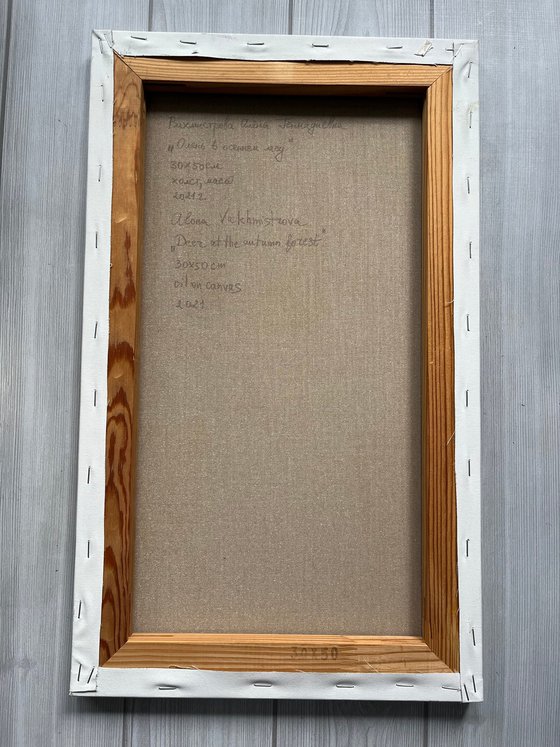 Вахмистрова Алёна Геннадиевна
„Олень в осеннем лесу"
30х50см
холст, масло
2021г
Alona Vakhmistrova
„Deer at the autumn forest"
30x50 cm
oil on canvas
2021
30x50